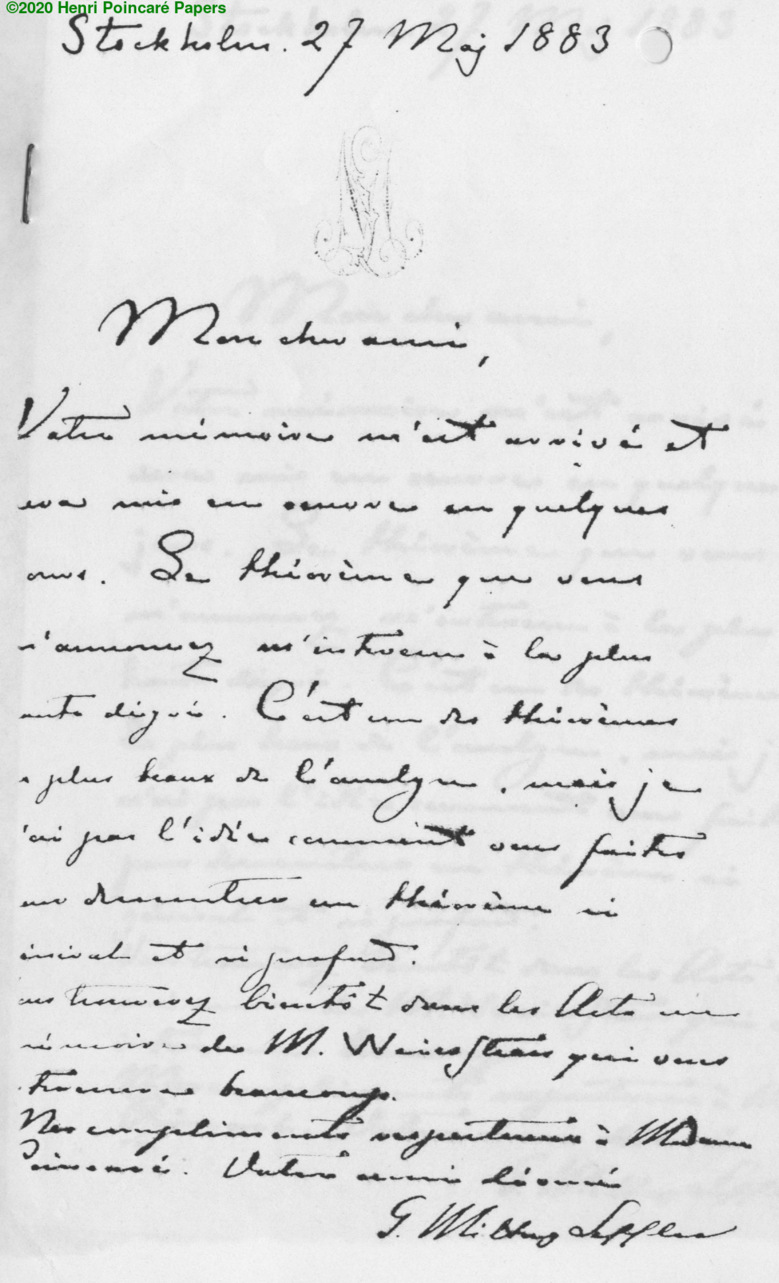 ©2020 Henri Poincaré Papers
Stockholm. 27 Maj 1883
Mon cher ami,
Votre mémoire m'est arrivé et
sera mis en oeuvre en quelques
ours. Le théorème que vous
m'annoncez m'interesse à la plus
aute degré. C'est un des théorèmes
s plus beaux de l'analyse, mais je
'ai pas l'idée comment vous faites
our demontrer un théorème si
énéral et si profond.
ous trouverez bientôt dans les Acta un
mémoire de M. Weierstrass qui vous
beaucoup.
Mes compliments respectueux à Madame
Poincaré. Votre ami dévoué
G. Mittag Leffler